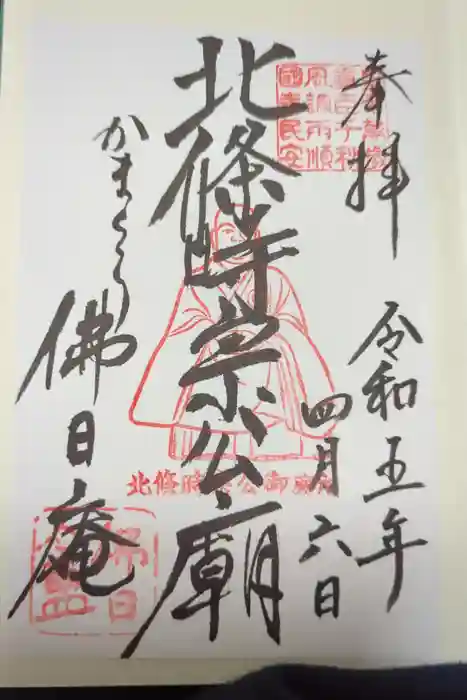 奉拝
令和五年
四月六日
北條時宗公廟
かまくら
佛日庵
風調雨順
國泰民安
北條時宗公御廟所
佛日